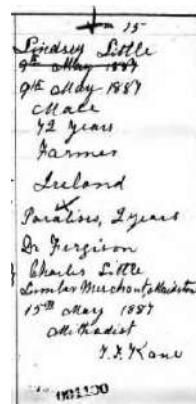 15
Lindsey Little
9th May 1887
9th May 1887
Male
72 Years
Farmer
Ireland
Paralisis, 2 years
Dr Fergison
Charles Little
Lumber Merchant,
15th May 1887
Methodist
T. F. Kane
001100